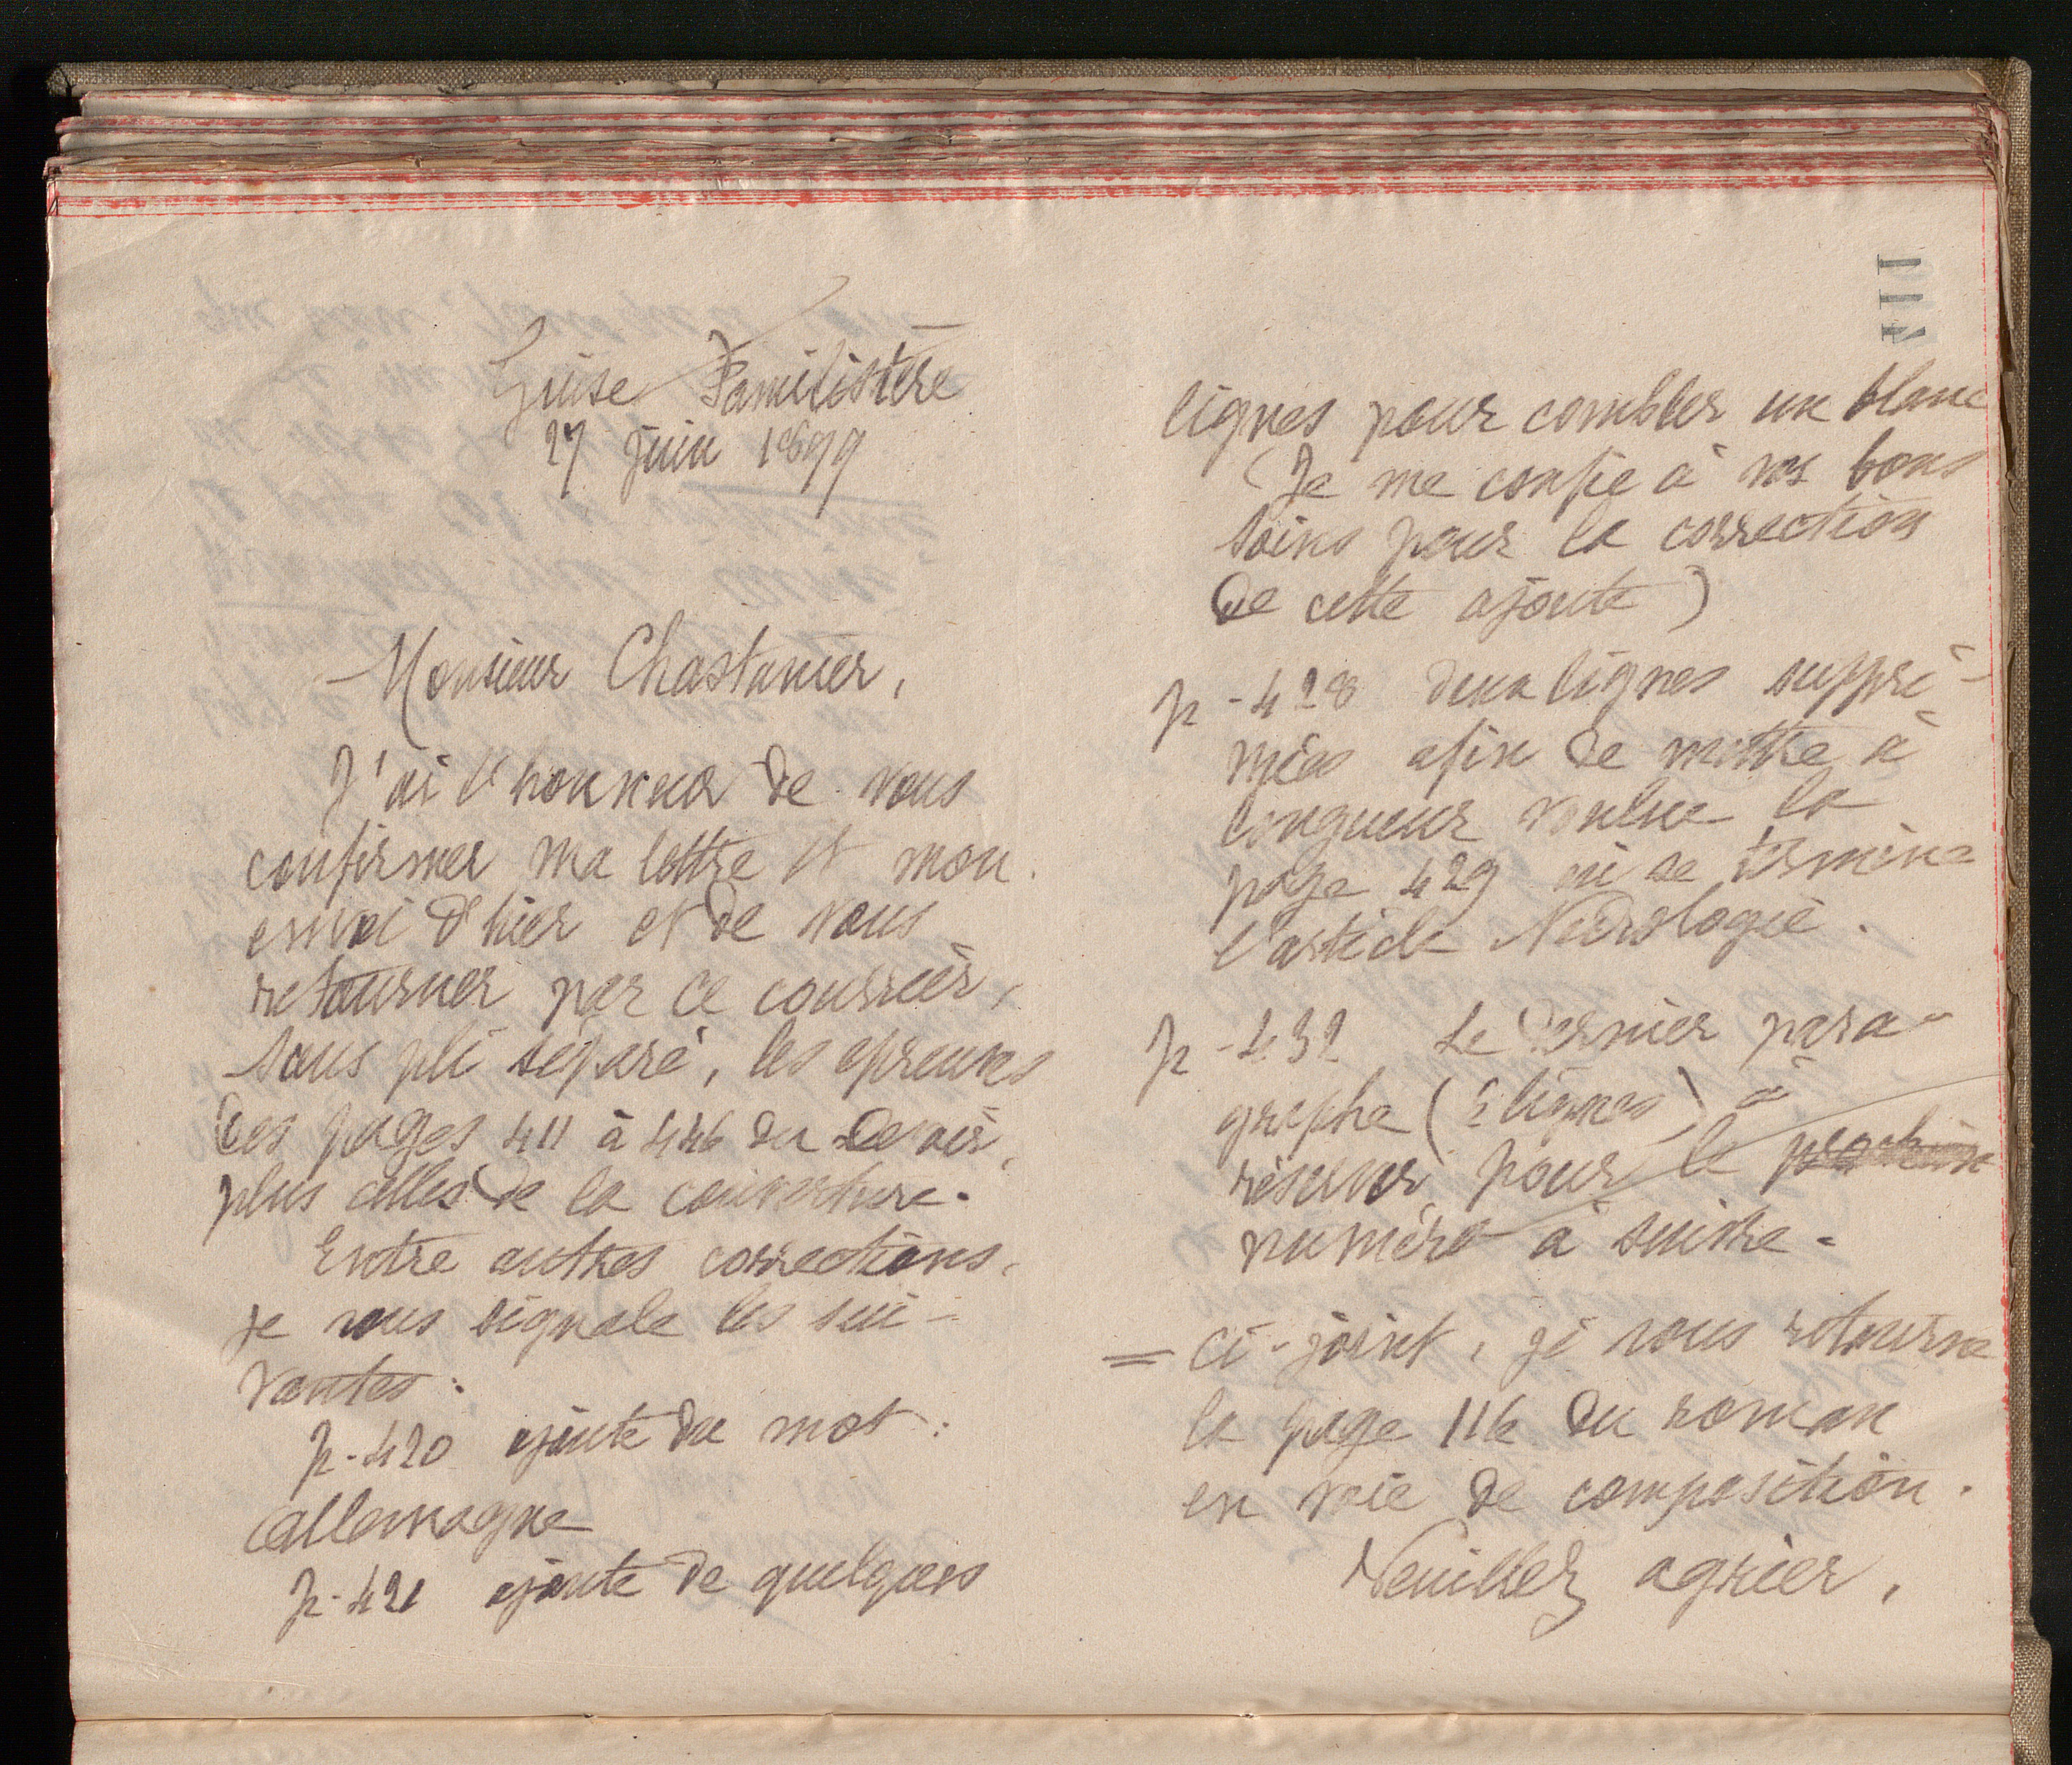 Guise Familistère
27 juin 1899
Monsieur Chastanier,
J'ai l'honneur de vous
confirmer ma lettre et mon
envoi d'hier et de vous
retourner par ce courrier,
sous pli séparé, les épreuves
des pages 411 à 446 du Devoir,
plus celles de la couverture.
Entre autres corrections,
je vous signale les sui-
vantes :
p. 420 ajoute du mot :
Allemagne
p. 421 ajoute de quelques
lignes pour combler un blanc
(Je me confie à vos bons
soins pour la correction
de cette ajoute)
p. 428 deux lignes suppri-
mées afin de mettre à
longueur voulue la
page 429 où se termine
l'article Nécrologie.
p. 432 Le dernier para-
graphe ( lignes) à
réserver pour le prochain
numéro à suivre.
= Ci-joint, je vous retourne
la page 116 du roman
en voie de composition.
Veuillez agréer,